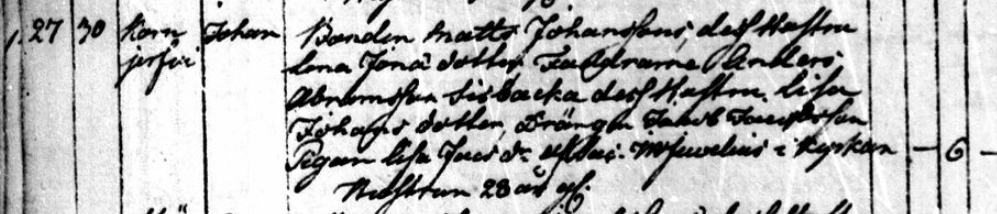 27 30 Korn Johan Bonden Matts Johanssons dess Hustru
jerfvi Lena Jona dotter Faddrarne Anders
Abramsson Sisbacka dess Hustru Lisa
Johans dotter, Drängen Jacob Jacobsson
Pigan Lisa Jacs dr i Kyrkan — 6 —
Hustrun 28 år gl.